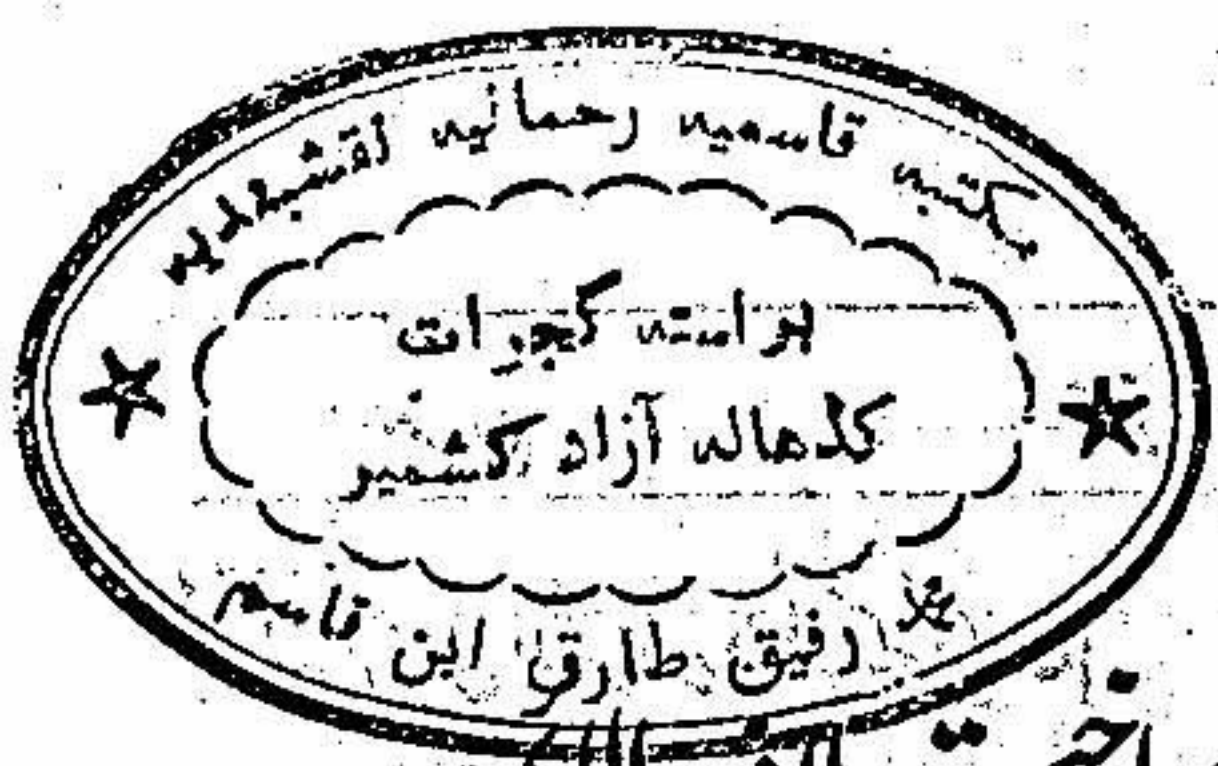 مکتبہ قاسمیہ رحمانیہ نقشبندیہ
براستہ گجرات
کڈھالہ آزاد کشمیر
رفیق طارق ابن قاسم